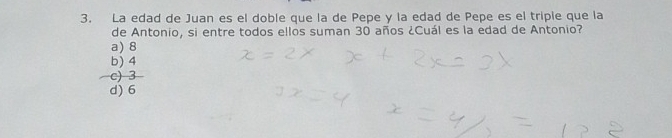 3. La edad de Juan es el doble que la de Pepe y la edad de Pepe es el triple que la
de Antonio, si entre todos ellos suman 30 años ¿Cuál es la edad de Antonio?
a) 8
b) 4
c) 3
d) 6
x = 2x x + 2x = 3x
3x = 4
x = 4/